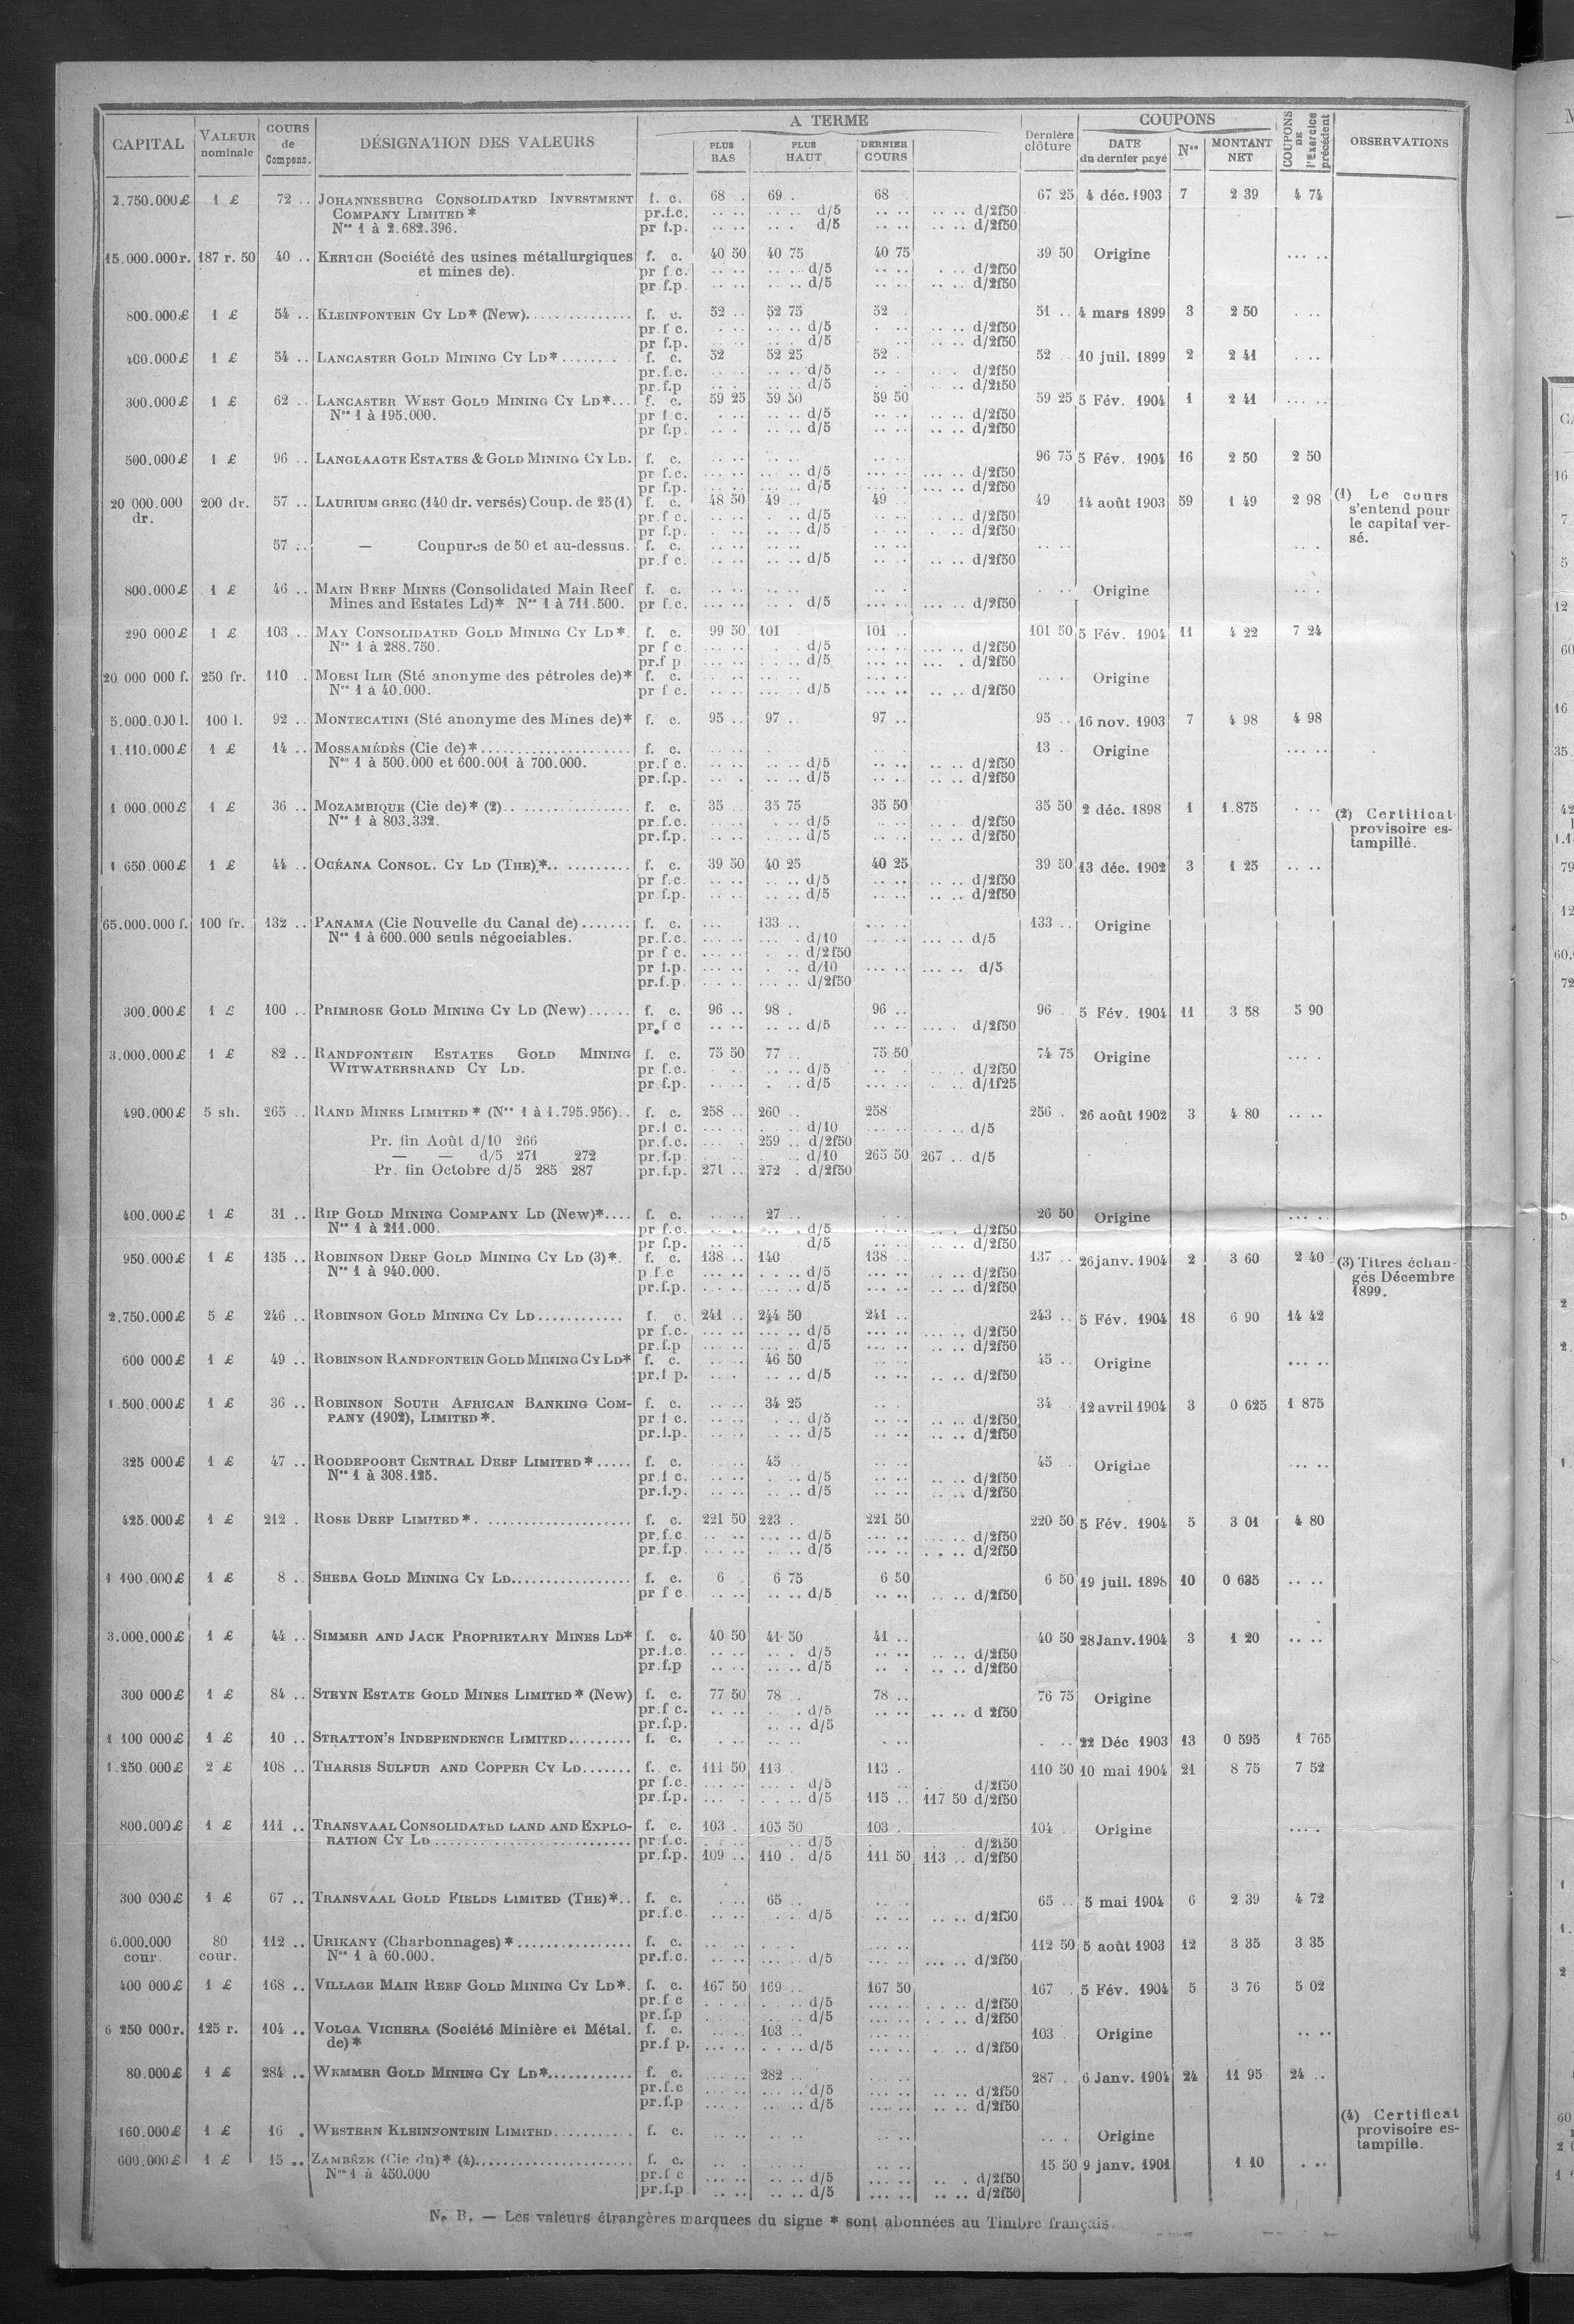 CAPITAL VALEUR nominale COURS de Compens. DÉSIGNATION DES VALEURS A TERME PLUS BAS PLUS HAUT DERNIER COURS Dernière clôture COUPONS DATE du dernier payé Nos MONTANT NET COUPONS DE l'Exercice précédent OBSERVATIONS
2.750.000£ 1 £ 72 .. JOHANNESBURG CONSOLIDATED INVESTMENT f. c. 68 .. 69 . 68 67 25 4 déc. 1903 7 2 39 4 74
COMPANY LIMITED * pr.f.c. .. .. .. .. d/5 .. .. .. .. d/2f50
Nos 1 à 2.682.396. pr f.p. .. .. .. . d/5 .. .. .. .. d/2f50
15.000.000 r. 187 r. 50 40 .. KERTCH (Société des usines métallurgiques f. c. 40 50 40 75 40 75 39 50 Origine .. ..
et mines de). pr f.c. .. .. .. .. d/5 .. .. .. .. d/2f50
pr f.p. .. .. .. .. d/5 .. .. .. .. d/2f50
800.000£ 1 £ 54 .. KLEINFONTEIN CY LD* (New).............. f. c. 52 .. 52 75 52 . 51 .. 4 mars 1899 3 2 50 . ..
pr.f c. .. .. .. .. d/5 .. .. .. .. d/2f50
pr f.p. .. .. .. .. d/5 .. .. .. .. d/2f50
400.000£ 1 £ 54 .. LANCASTER GOLD MINING CY LD*........ f. c. 52 52 25 52 . 52 .. 10 juil. 1899 2 2 41 . ..
pr.f.c. .. .. .. .. d/5 .. . .. . d/2f50
pr.f.p .. .. .. .. d/5 .. .. .. d/2f50
300.000£ 1 £ 62 .. LANCASTER WEST GOLD MINING CY LD*... f. c. 59 25 59 50 59 50 59 25 5 Fév. 1904 1 2 41 .. ..
Nos 1 à 195.000. pr f c. .. .. .. d/5 .. .. .. .. d/2f50
pr f.p. .. .. .. .. d/5 .. .. .. .. d/2f50
500.000£ 1 £ 96 .. LANGLAAGTE ESTATES & GOLD MINING CY LD. f. c. .. .. .. .. .. .. 96 75 5 Fév. 1904 16 2 50 2 50
pr f.c. .. .. .. .. d/5 .. .. .. .. d/2f50
pr f.p. .. .. .. .. d/5 .. .. .. .. d/2f50
20 000.000 dr. 200 dr. 57 .. LAURIUM GREC (140 dr. versés) Coup. de 25 (1) f. c. 48 50 49 .. 49 49 14 août 1903 59 1 49 2 98 (1) Le cours
pr.f c. .. .. .. .. d/5 .. .. .. .. d/2f50 s'entend pour
pr f.p. .. .. .. .. d/5 .. .. .. .. d/2f50 le capital ver-
57 .. — Coupures de 50 et au-dessus. f. c. .. .. .. .. .. .. .. .. .. . sé.
pr.f c. .. .. .. .. d/5 .. .. .. .. d/2f50
800.000£ 1 £ 46 .. MAIN REEF MINES (Consolidated Main Reef f. c. .. .. .. .. .. . Origine .. .
Mines and Estates Ld)* Nos 1 à 711.500. pr f.c. .. .. .. . d/5 .. .. .. .. d/2f50
290 000£ 1 £ 103 .. MAY CONSOLIDATED GOLD MINING CY LD*. f. c. 99 50 101 101 .. 101 50 5 Fév. 1904 11 4 22 7 24
Nos 1 à 288.750. pr f c. .. .. . .. d/5 .. .. .. .. d/2f50
pr.f p .. .. . .. d/5 .. .. .. . d/2f50
20 000 000 f. 250 fr. 110 . MOESI ILIR (Sté anonyme des pétroles de)* f. c. .. .. .. .. .. .. .. .. Origine
Nos 1 à 40.000. pr f c. .. .. .. .. d/5 .. .. .. .. d/2f50
5.000.000 l. 100 l. 92 .. MONTECATINI (Sté anonyme des Mines de)* f. c. 95 .. 97 .. 97 .. 95 .. 16 nov. 1903 7 4 98 4 98
1.110.000£ 1 £ 14 .. MOSSAMÉDÈS (Cie de)*................... f. c. .. .. . .. .. 13 . Origine .. ..
Nos 1 à 500.000 et 600.001 à 700.000. pr.f c .. .. .. .. d/5 .. .. .. .. d/2f50
pr.f.p. .. . .. .. d/5 .. .. .. .. d/2f50
1 000.000£ 1 £ 36 .. MOZAMBIQUE (Cie de)* (2)................ f. c. 35 .. 35 75 35 50 35 50 2 déc. 1898 1 1.875 . .. (2) Certificat
Nos 1 à 803.332. pr.f.c. .. .. . .. d/5 .. .. .. .. d/2f50 provisoire es-
pr.f.p. .. .. .. .. d/5 .. .. .. .. d/2f50 tampillé.
1 650.000£ 1 £ 44 .. OCÉANA CONSOL. CY LD (THE)*........... f. c. 39 50 40 25 40 25 39 50 13 déc. 1902 3 1 25 .. ..
pr f.c. .. .. .. .. d/5 .. .. .. .. d/2f50
pr f.p. .. .. .. .. d/5 .. .. .. .. d/2f50
65.000.000 f. 100 fr. 132 .. PANAMA (Cie Nouvelle du Canal de)....... f. c. ... 133 .. .. .. 133 .. Origine
Nos 1 à 600.000 seuls négociables. pr.f.c. .. .. .. . d/10 .. .. .. .. d/5
pr f c. .. .. . .. d/2f50
pr f.p. .. .. . .. d/10 .. .. .. .. d/5
pr.f.p. .. .. .. .. d/2f50
300.000£ 1 £ 100 .. PRIMROSE GOLD MINING CY LD (New)...... f. c. 96 .. 98 . 96 .. 96 . 5 Fév. 1904 11 3 58 5 90
pr.f c .. .. .. .. d/5 .. .. .. . d/2f50
3.000.000£ 1 £ 82 .. RANDFONTEIN ESTATES GOLD MINING f. c. 75 50 77 .. 75 50 74 75 Origine .. .
WITWATERSRAND CY LD. pr f.c. . .. .. .. d/5 .. . .. .. d/2f50
pr.f.p. . .. . .. d/5 .. .. . .. d/1f25
490.000£ 5 sh. 265 .. RAND MINES LIMITED * (Nos 1 à 1.795.956).. f. c. 258 .. 260 .. 258 256 . 26 août 1902 3 4 80 .. ..
pr.f c. .. .. . .. d/10 .. .. .. .. d/5
Pr. fin Août d/10 266 pr.f.c. .. . 259 .. d/2f50
— — d/5 271 272 pr.f.p. .. .. .. d/10 265 50 267 .. d/5
Pr. fin Octobre d/5 285 287 pr.f.p. 271 .. 272 . d/2f50
400.000£ 1 £ 31 .. RIP GOLD MINING COMPANY LD (New)*.... f. c. .. .. 27 .. 26 50 Origine .. ..
Nos 1 à 211.000. pr f.c. .. .. .. . d/5 .. .. .. .. d/2f50
pr f.p. .. .. .. d/5 .. .. .. .. d/2f50
950.000£ 1 £ 135 .. ROBINSON DEEP GOLD MINING CY LD (3)*. f. c. 138 .. 140 138 .. 137 .. 26 janv. 1904 2 3 60 2 40 (3) Titres échan-
Nos 1 à 940.000. p f c .. .. . .. d/5 .. .. .. .. d/2f50 gés Décembre
pr.f.p. .. .. .. .. d/5 .. .. .. .. d/2f50 1899.
2.750.000£ 5 £ 246 .. ROBINSON GOLD MINING CY LD............ f. c. 241 .. 244 50 241 .. 243 .. 5 Fév. 1904 18 6 90 14 42
pr f.c. .. .. .. .. d/5 .. .. .. .. d/2f50
pr.f.p .. .. .. .. d/5 .. .. .. .. d/2f50
600 000£ 1 £ 49 .. ROBINSON RANDFONTEIN GOLD MINING CY LD* f. c. .. .. 46 50 .. .. 45 .. Origine .. ..
pr.f p. .. . .. .. d/5 .. .. .. .. d/2f50
1.500.000£ 1 £ 36 .. ROBINSON SOUTH AFRICAN BANKING COM- f. c. .. .. 34 25 .. . 34 12 avril 1904 3 0 625 1 875
PANY (1902), LIMITED *. pr.f c. .. .. . .. d/5 .. .. .. .. d/2f50
pr.f.p. .. .. .. .. d/5 .. .. .. .. d/2f50
325 000£ 1 £ 47 .. ROODEPOORT CENTRAL DEEP LIMITED *..... f. c. .. .. 45 .. .. .. 45 .. Origine .. ..
Nos 1 à 308.125. pr.f c. .. .. .. .. d/5 .. .. .. .. d/2f50
pr.f.p. .. .. .. .. d/5 .. .. .. .. d/2f50
425.000£ 1 £ 212 . ROSE DEEP LIMITED *. ................... f. c. 221 50 223 . 221 50 220 50 5 Fév. 1904 5 3 01 4 80
pr.f.c .. .. .. .. d/5 .. .. .. .. d/2f50
pr.f.p .. .. .. .. d/5 .. .. .. .. d/2f50
1 100.000£ 1 £ 8 .. SHEBA GOLD MINING CY LD................. f. c. 6 . 6 75 6 50 6 50 19 juil. 1898 10 0 635 .. ..
pr f c .. .. .. .. d/5 .. .. .. .. d/2f50
3.000.000£ 1 £ 44 .. SIMMER AND JACK PROPRIETARY MINES LD* f. c. 40 50 41 50 41 .. 40 50 28 Janv. 1904 3 1 20 .. ..
pr.f.c .. .. .. . d/5 .. .. .. .. d/2f50
pr.f.p .. .. .. .. d/5 .. . .. .. d/2f50
300 000£ 1 £ 84 .. STEYN ESTATE GOLD MINES LIMITED * (New) f. c. 77 50 78 .. 78 .. 76 75 Origine
pr.f c. .. .. .. . d/5 .. .. .. .. d 2f50
pr.f.p. .. .. d/5
1 100 000£ 1 £ 10 .. STRATTON'S INDEPENDENCE LIMITED......... f. c. . .. .. .. .. . . .. 22 Déc 1903 13 0 595 1 765
1.250.000£ 2 £ 108 .. THARSIS SULFUR AND COPPER CY LD....... f. c. 111 50 113 . 113 . 110 50 10 mai 1904 21 8 75 7 52
pr f.c. .. .. .. . d/5 .. . d/2f50
pr.f.p. .. . . .. d/5 115 .. 117 50 d/2f50
800.000£ 1 £ 111 .. TRANSVAAL CONSOLIDATED LAND AND EXPLO- f. c. 103 . 105 50 103 . 104 . Origine .. ..
RATION CY LD........................... pr.f.c. .. .. .. .. d/5 .. .. d/2f50
pr.f.p. 109 .. 110 . d/5 111 50 113 .. d/2f50
300 000£ 1 £ 67 .. TRANSVAAL GOLD FIELDS LIMITED (THE)*.. f. c. . .. 65 .. .. . 65 .. 5 mai 1904 6 2 39 4 72
pr.f.c .. .. . .. d/5 .. .. .. .. d/2f50
6.000.000 cour. 80 cour. 112 .. URIKANY (Charbonnages) *................ f. c. .. .. .. .. .. .. 112 50 5 août 1903 12 3 35 3 35
Nos 1 à 60.000. pr.f.c. .. .. .. .. d/5 .. .. .. .. d/2f50
400 000£ 1 £ 168 .. VILLAGE MAIN REEF GOLD MINING CY LD*. f. c. 167 50 169 .. 167 50 167 . 5 Fév. 1904 5 3 76 5 02
pr.f c . .. . .. d/5 .. .. . .. d/2f50
pr.f.p .. .. .. .. d/5 .. .. . .. d/2f50
6 250 000 r. 125 r. 104 .. VOLGA VICHERA (Société Minière et Métal. f. c. .. .. 103 .. .. .. 103 . Origine .. ..
de)* pr.f p. .. .. . .. d/5 .. .. . .. d/2f50
80.000£ 1 £ 284 .. WEMMER GOLD MINING CY LD*............ f. c. .. .. 282 .. .. .. 287 . 6 Janv. 1904 24 11 95 24 ..
pr.f.c .. .. .. .. d/5 .. .. .. .. d/2f50
pr.f.p .. .. .. .. d/5 .. .. .. .. d/2f50
160.000£ 1 £ 16 . WESTERN KLEINFONTEIN LIMITED........... f. c. .. .. .. .. .. .. .. . Origine (4) Certificat
provisoire es-
tampillé.
600.000£ 1 £ 15 .. ZAMBÈZE (Cie du)* (4)..................... f. c. .. .. .. .. 15 50 9 janv. 1901 1 10 . ..
Nos 1 à 450.000 pr.f c .. .. .. .. d/5 .. .. .. . d/2f50
pr.f.p .. .. .. .. d/5 .. .. .. .. d/2f50
N. B. — Les valeurs étrangères marquées du signe * sont abonnées au Timbre français.